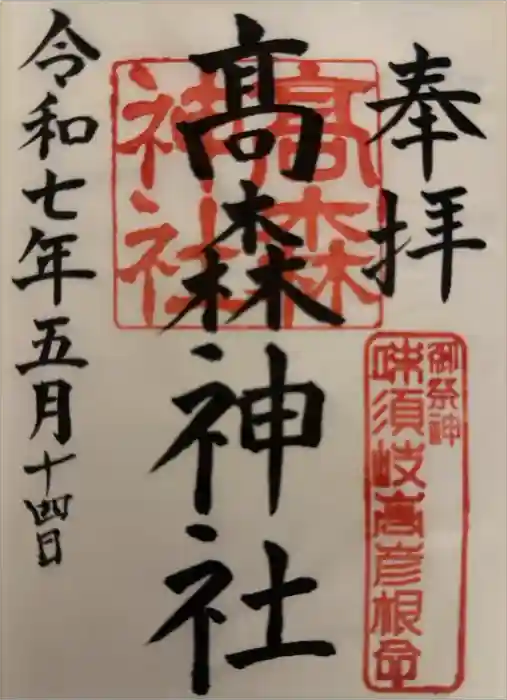 奉拝
御祭神
味須岐高彦根命
髙森神社
高森
神社
令和七年五月十四日